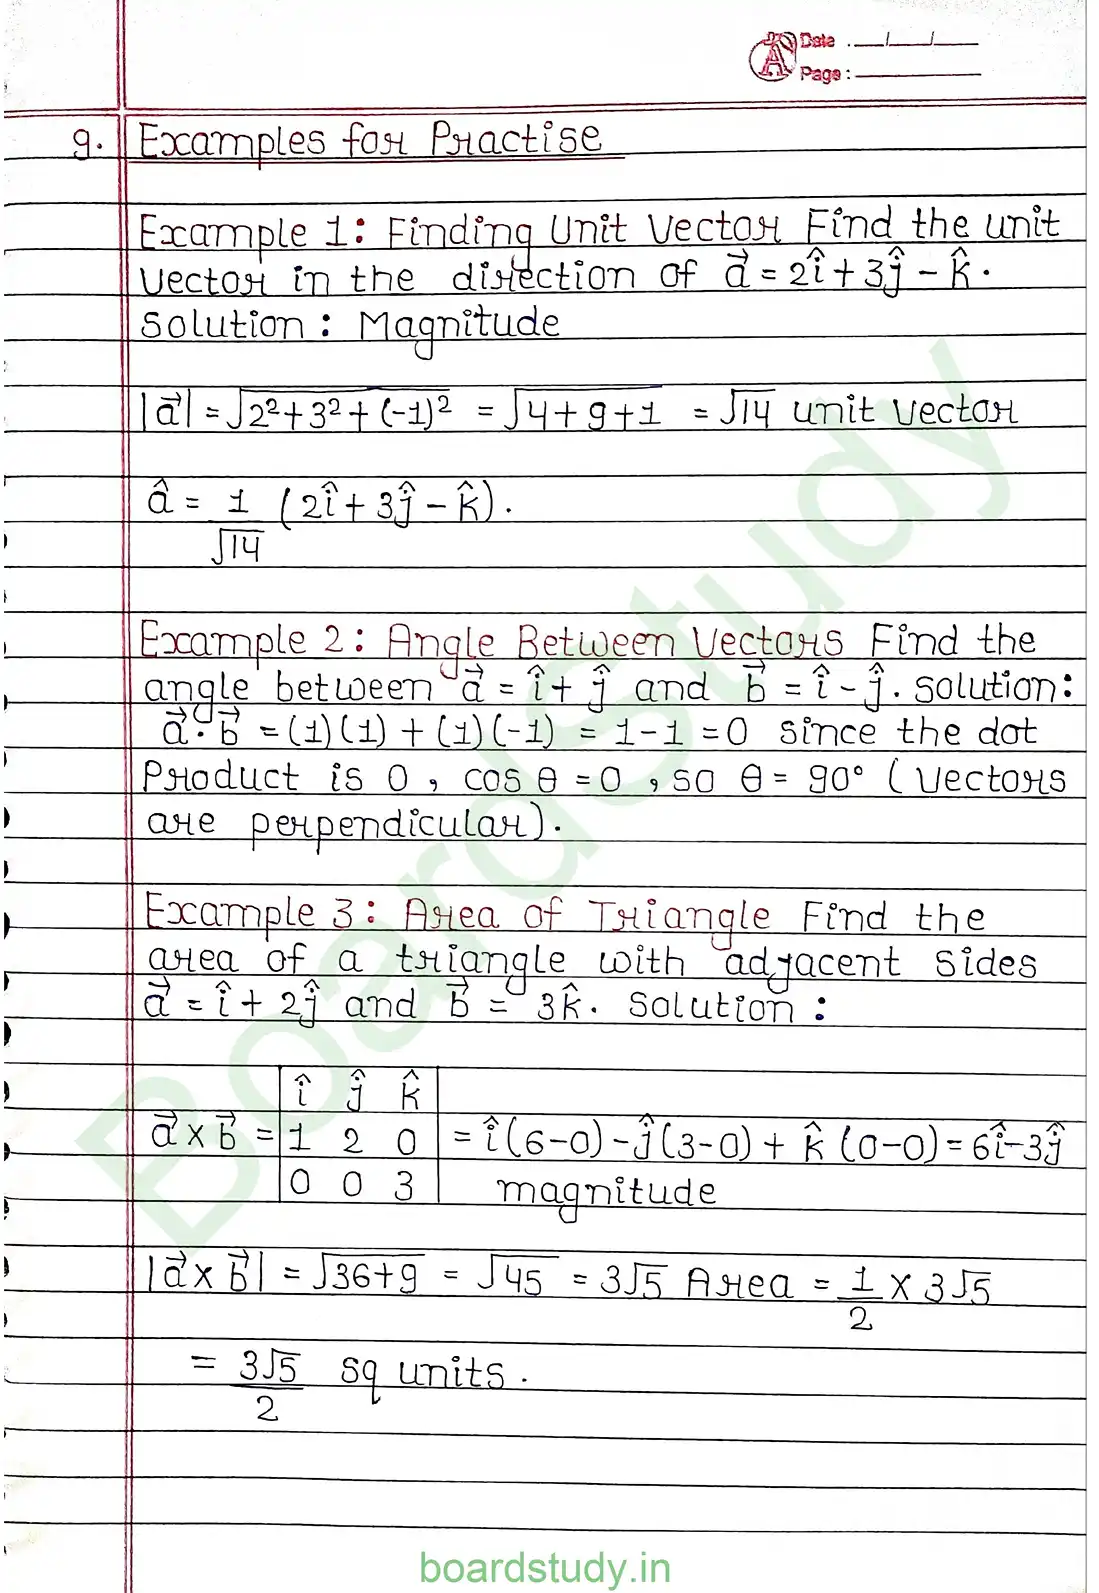 Date : __/__/__
Page :
9. Examples for Practise
Example 1: Finding Unit Vector Find the unit
vector in the direction of a⃗ = 2î + 3ĵ − k̂.
solution: Magnitude
|a⃗| = √2²+3²+(-1)² = √4+9+1 = √14 unit vector
â = 1/√14 (2î + 3ĵ − k̂).
Example 2: Angle Between Vectors Find the
angle between a⃗ = î + ĵ and b⃗ = î − ĵ. solution:
a⃗·b⃗ = (1)(1) + (1)(-1) = 1-1 = 0 since the dot
Product is 0, cos θ = 0, so θ = 90° (vectors
are perpendicular).
Example 3: Area of Triangle Find the
area of a triangle with adjacent sides
a⃗ = î + 2ĵ and b⃗ = 3k̂. Solution:
î ĵ k̂
a⃗ × b⃗ = |1 2 0| = î(6-0) - ĵ(3-0) + k̂(0-0) = 6î-3ĵ
0 0 3 magnitude
|a⃗ × b⃗| = √36+9 = √45 = 3√5 Area = 1/2 × 3√5
= 3√5/2 sq units.
BoardStudy
boardstudy.in